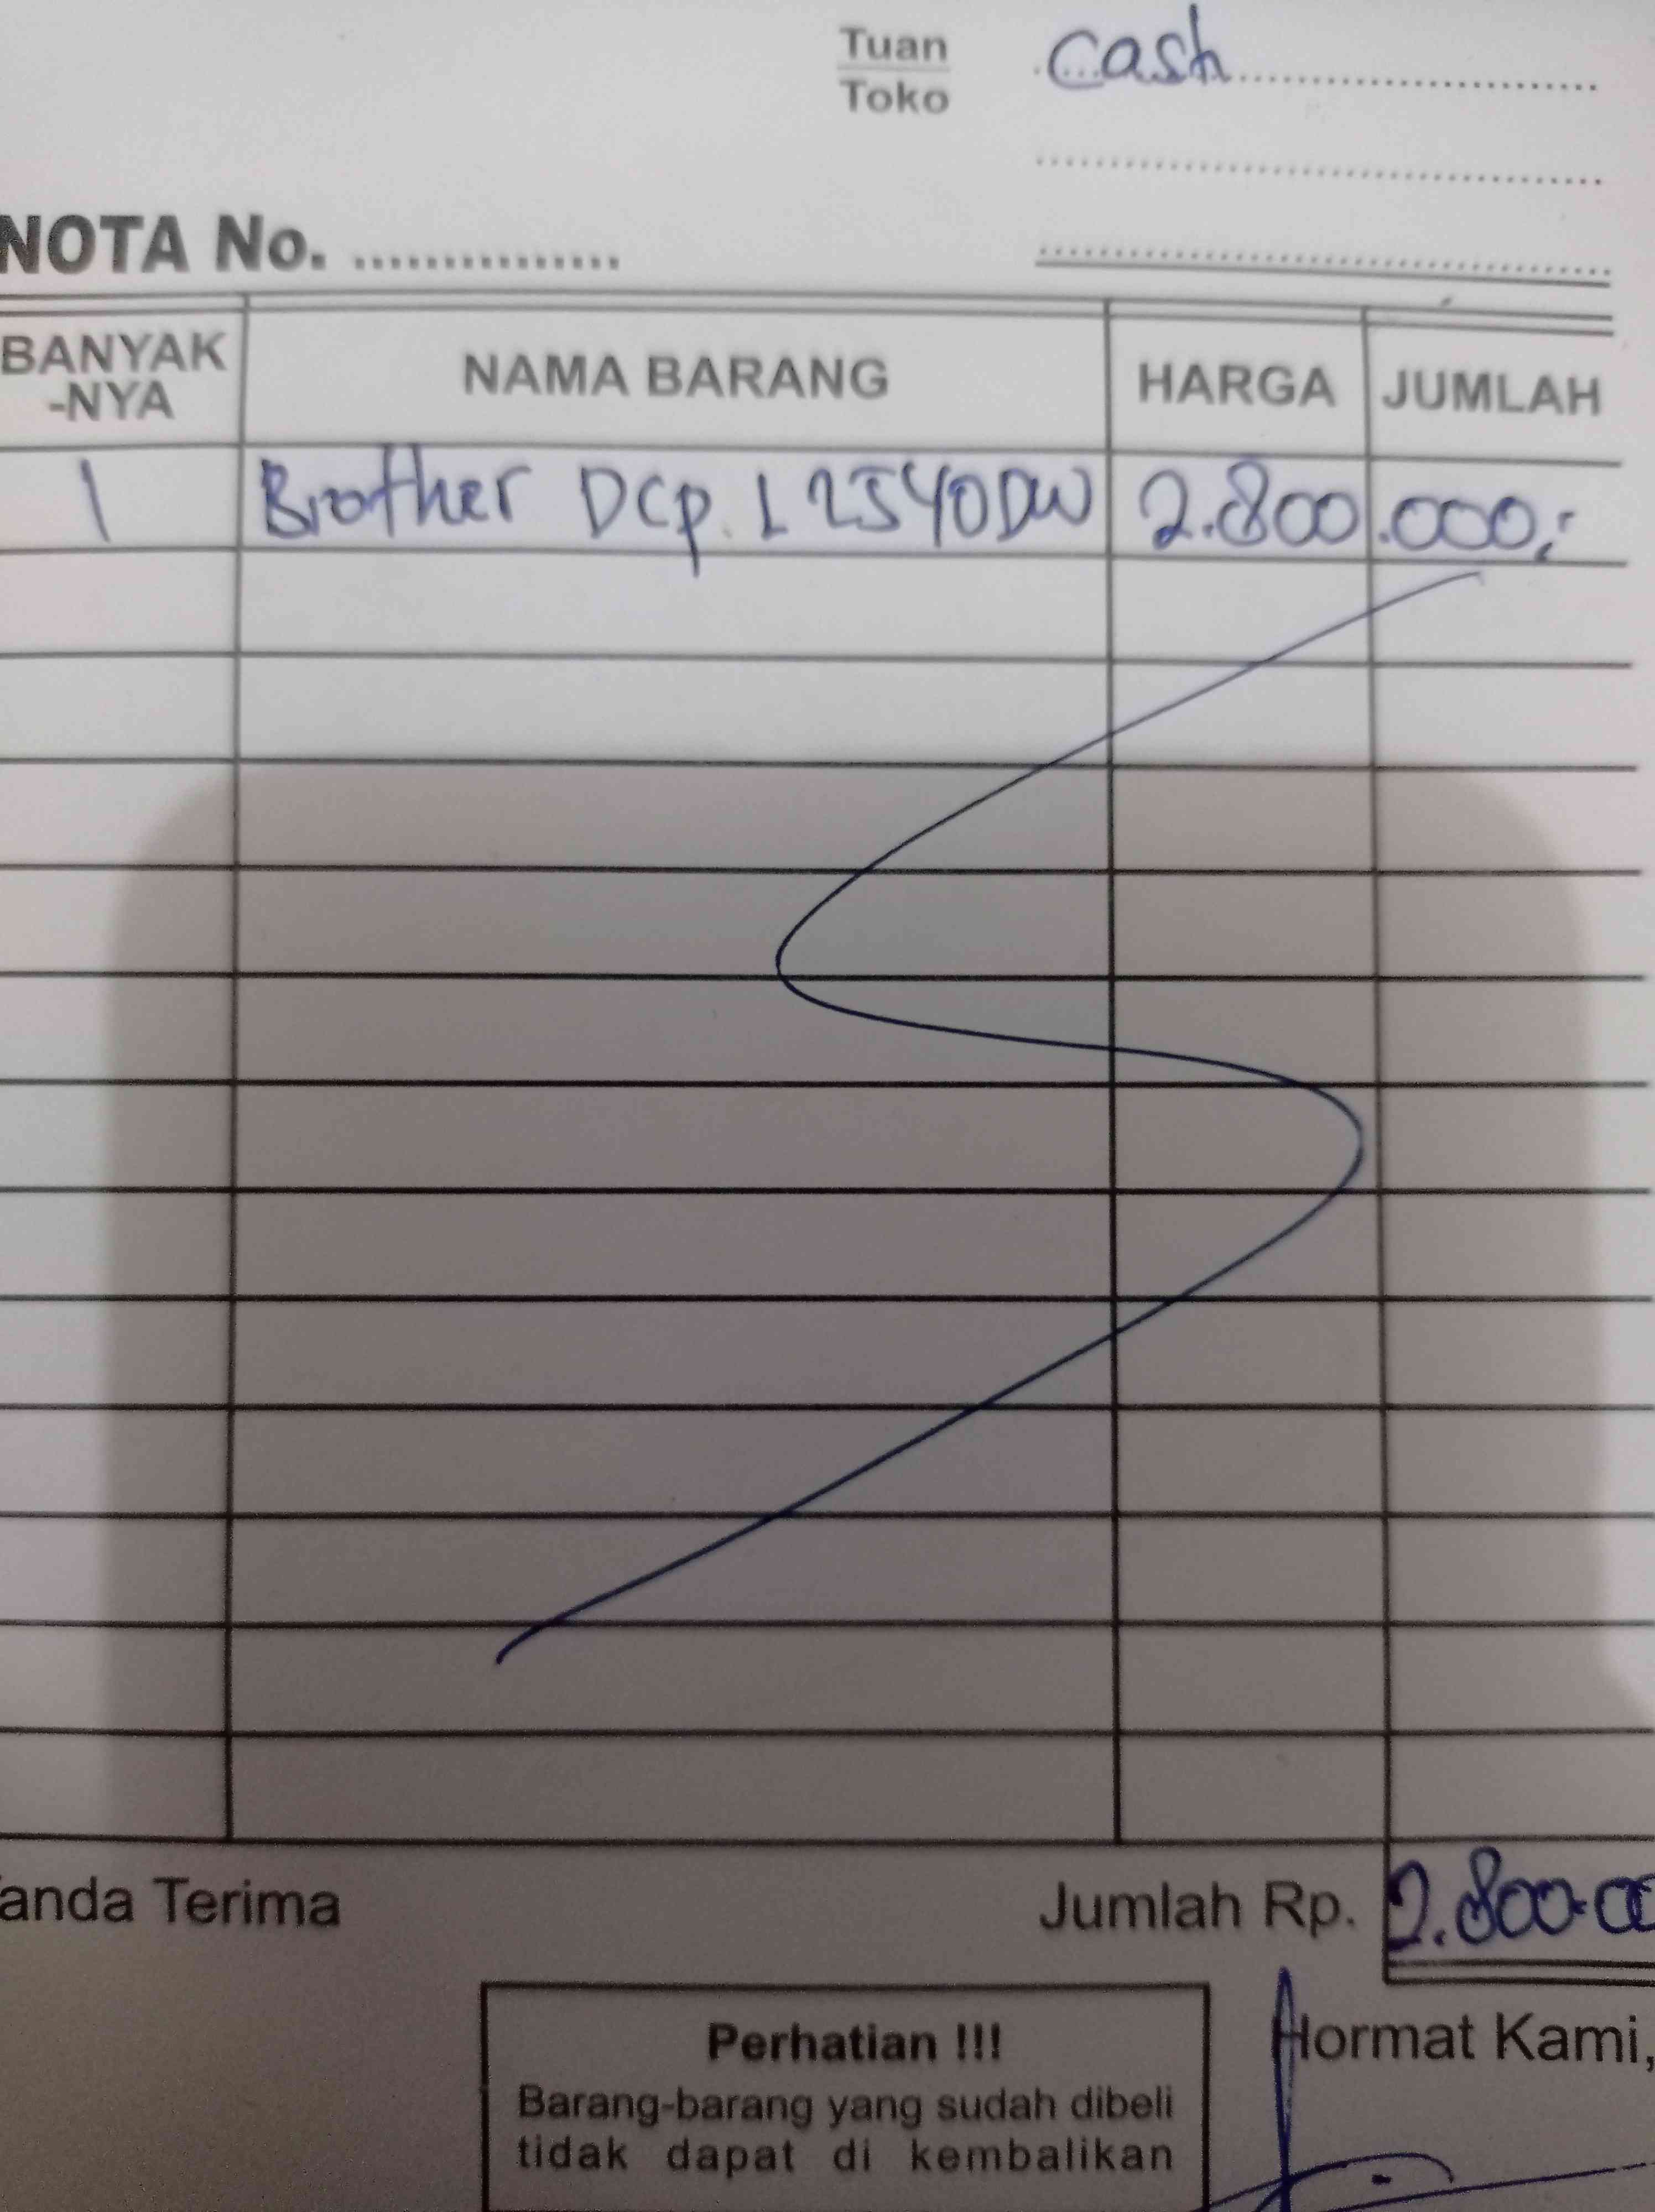 Tuan cash
Toko
NOTA No. ...............
BANYAK NAMA BARANG HARGA JUMLAH
-NYA
1 Brother DCp. L 2540DW 2.800.000,-
anda Terima Jumlah Rp. 2.800.00
Hormat Kami,
Perhatian !!!
Barang-barang yang sudah dibeli
tidak dapat di kembalikan